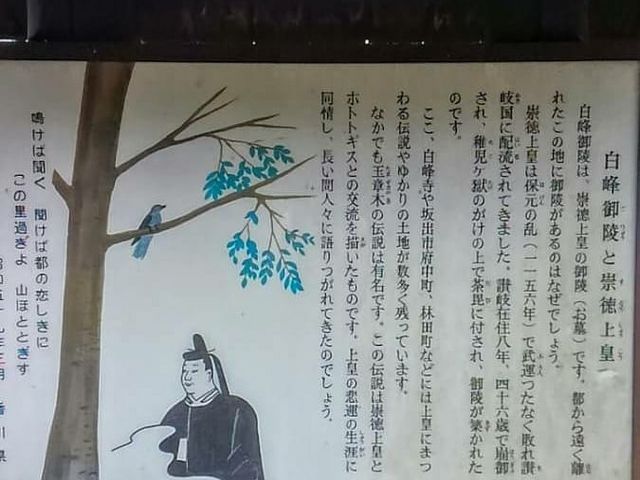 白峰御陵と崇徳上皇
白峰御陵は、崇徳上皇の御陵（お墓）です。都から遠く離
れたこの地に御陵があるのはなぜでしょう。
崇徳上皇は保元の乱（一一五六年）で武運つたなく敗れ讃
岐国に配流されてきました。讃岐在住八年、四十六歳で崩御
され、稚児ヶ嶽のがけの上で荼毘に付され、御陵が築かれた
のです。
ここ、白峰寺や坂出市府中町、林田町などには上皇にまつ
わる伝説やゆかりの土地が数多く残っています。
なかでも玉章木の伝説は有名です。この伝説は崇徳上皇と
ホトトギスとの交流を描いたものです。上皇の悲運の生涯に
同情し、長い間人々に語りつがれてきたのでしょう。
鳴けば聞く 聞けば都の恋しきに
この里過ぎよ 山ほととぎす